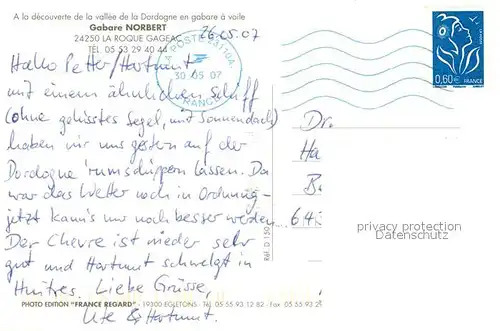 A la découverte de la vallée de la Dordogne en gabare à voile
Gabare NORBERT
24250 LA ROQUE GAGEAC
TÉL. 05 53 29 40 44
26.05.07
LA POSTE 31704A
30 05 07
FRANCE
0,60 € FRANCE
Hallo Petter/Hartmut
mit einem ähnlichen Schiff
(ohne gehisstes Segel, mit Sonnendach)
haben wir uns gestern auf der
Dordogne 'rumschippern lassen. Da
war das Wetter noch in Ordnung -
jetzt kann's nur noch besser werden.
Der Chevre ist wieder sehr
gut und Hartmut schwelgt in
Huitres. Liebe Grüsse,
Ute & Hartmut.
Dr.
Ha
B
64
privacy protection
Datenschutz
PHOTO EDITION "FRANCE REGARD" - 19300 EGLETONS - Tél. 05 55 93 12 82 - Fax 05 55 93 2
Réf. D 150